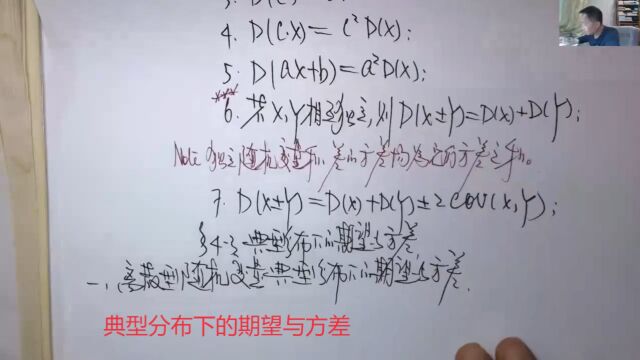 4. D(C·X)=C²D(X);
5. D(aX+b)=a²D(X);
***
6. 若X,Y相互独立,则D(X±Y)=D(X)+D(Y);
Note 独立随机变量和、差的方差均为它的方差之和。
7. D(X±Y)=D(X)+D(Y)±2COV(X,Y);
§4-3 典型分布下的期望与方差
一、离散型随机变量典型分布下的期望与方差.
典型分布下的期望与方差